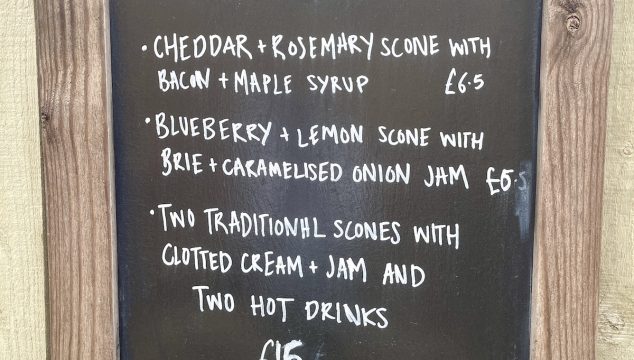 • CHEDDAR + ROSEMARY SCONE WITH
BACON + MAPLE SYRUP £6.5
• BLUEBERRY + LEMON SCONE WITH
BRIE + CARAMELISED ONION JAM £6.5
• TWO TRADITIONAL SCONES WITH
CLOTTED CREAM + JAM AND
TWO HOT DRINKS
£15